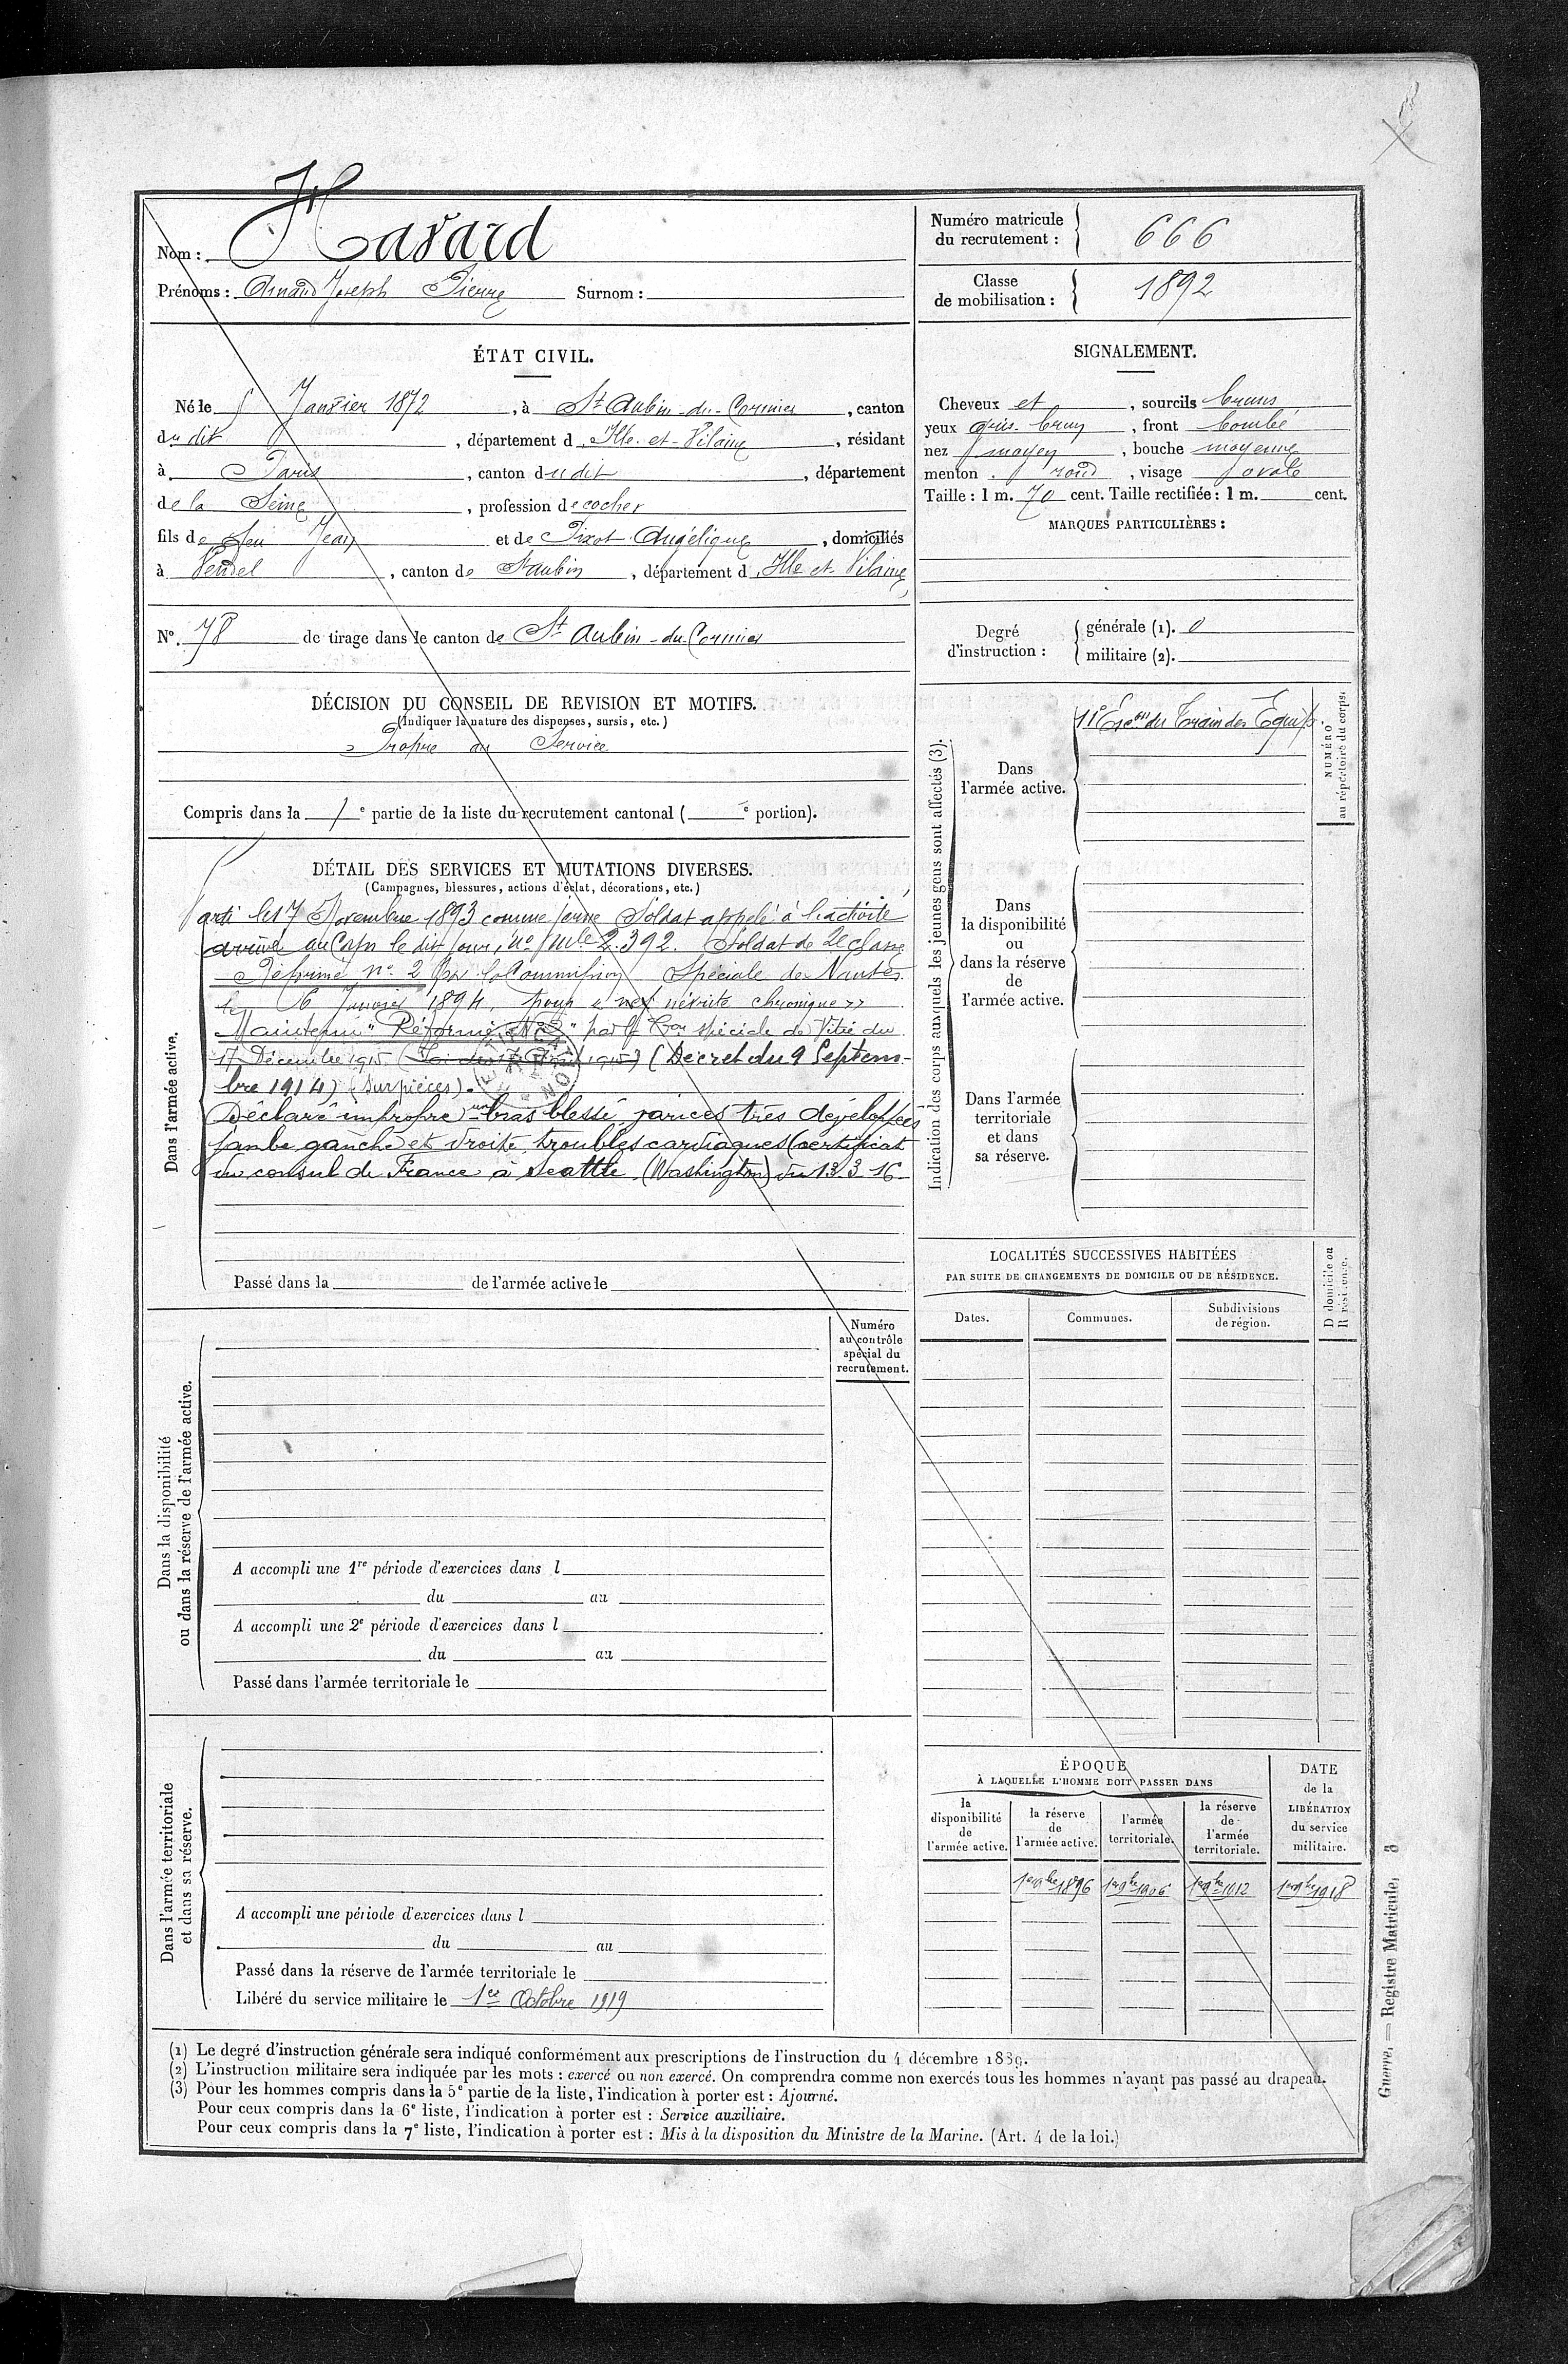 Nom : Havard
Prénoms : Armand Joseph Pierre Surnom :
Numéro matricule du recrutement : 666
Classe de mobilisation : 1892
ÉTAT CIVIL.
Né le 5 Janvier 1872, à St Aubin-du-Cormier, canton
du dit, département d Ille-et-Vilaine, résidant
à Paris, canton du dit, département
de la Seine, profession de cocher
fils de feu Jean et de Pixot Angélique, domiciliés
à Vendel, canton de St aubin, département d Ille et Vilaine
No. 78 de tirage dans le canton de St Aubin-du-Cormier
DÉCISION DU CONSEIL DE REVISION ET MOTIFS.
(Indiquer la nature des dispenses, sursis, etc.)
Propre au Service
Compris dans la 1e partie de la liste du recrutement cantonal ( e portion).
SIGNALEMENT.
Cheveux et, sourcils bruns
yeux gris. brun, front bombé
nez moyen, bouche moyenne
menton rond, visage ovale
Taille : 1 m. 70 cent. Taille rectifiée : 1 m. cent.
MARQUES PARTICULIÈRES :
Degré d'instruction : générale (1). 0
militaire (2).
DÉTAIL DES SERVICES ET MUTATIONS DIVERSES.
(Campagnes, blessures, actions d'éclat, décorations, etc.)
Dans l'armée active.
Parti le 17 Novembre 1893 comme jeune Soldat appelé à l'activité
arrivé au Corps le dit jour, no mle 2.392. Soldat de 2e classe
Réformé no 2 Par la Commission Spéciale de Nantes
le 6 Janvier 1894, pour névrite chronique »
Maintenu "Réformé No 2" par la Con spéciale de Vitré du
17 Décembre 1915 (Loi du 17 Août 1915) (Décret du 9 Septem-
bre 1914) (Sur pièces).
Déclaré impropre un bras blessé, varices très développées
jambe gauche et droite, troubles cardiaques (certificat
du consul de France à Seattle (Washington) du 13.3.16
Passé dans la de l'armée active le
Indication des corps auxquels les jeunes gens sont affectés (3).
Dans l'armée active.
11e Escon du Train des Equip.
NUMÉRO au répertoire du corps.
Dans la disponibilité ou dans la réserve de l'armée active.
Dans l'armée territoriale et dans sa réserve.
LOCALITÉS SUCCESSIVES HABITÉES
PAR SUITE DE CHANGEMENTS DE DOMICILE OU DE RÉSIDENCE.
Dates. Communes. Subdivisions de région.
D domicile ou R résidence.
Dans la disponibilité
ou dans la réserve de l'armée active.
Numéro
au contrôle
spécial du
recrutement.
A accompli une 1re période d'exercices dans l
du au
A accompli une 2e période d'exercices dans l
du au
Passé dans l'armée territoriale le
Dans l'armée territoriale
et dans sa réserve.
A accompli une période d'exercices dans l
du au
Passé dans la réserve de l'armée territoriale le
Libéré du service militaire le 1er Octobre 1919
ÉPOQUE
À LAQUELLE L'HOMME DOIT PASSER DANS
la disponibilité de l'armée active.
la réserve de l'armée active.
l'armée territoriale.
la réserve de l'armée territoriale.
DATE de la LIBÉRATION du service militaire.
1er 9bre 1896 1er 9bre 1906 1er 9bre 1912 1er 9bre 1918
(1) Le degré d'instruction générale sera indiqué conformément aux prescriptions de l'instruction du 4 décembre 1889.
(2) L'instruction militaire sera indiquée par les mots : exercé ou non exercé. On comprendra comme non exercés tous les hommes n'ayant pas passé au drapeau.
(3) Pour les hommes compris dans la 5e partie de la liste, l'indication à porter est : Ajourné.
Pour ceux compris dans la 6e liste, l'indication à porter est : Service auxiliaire.
Pour ceux compris dans la 7e liste, l'indication à porter est : Mis à la disposition du Ministre de la Marine. (Art. 4 de la loi.)
Guerre. — Registre Matricule, 3